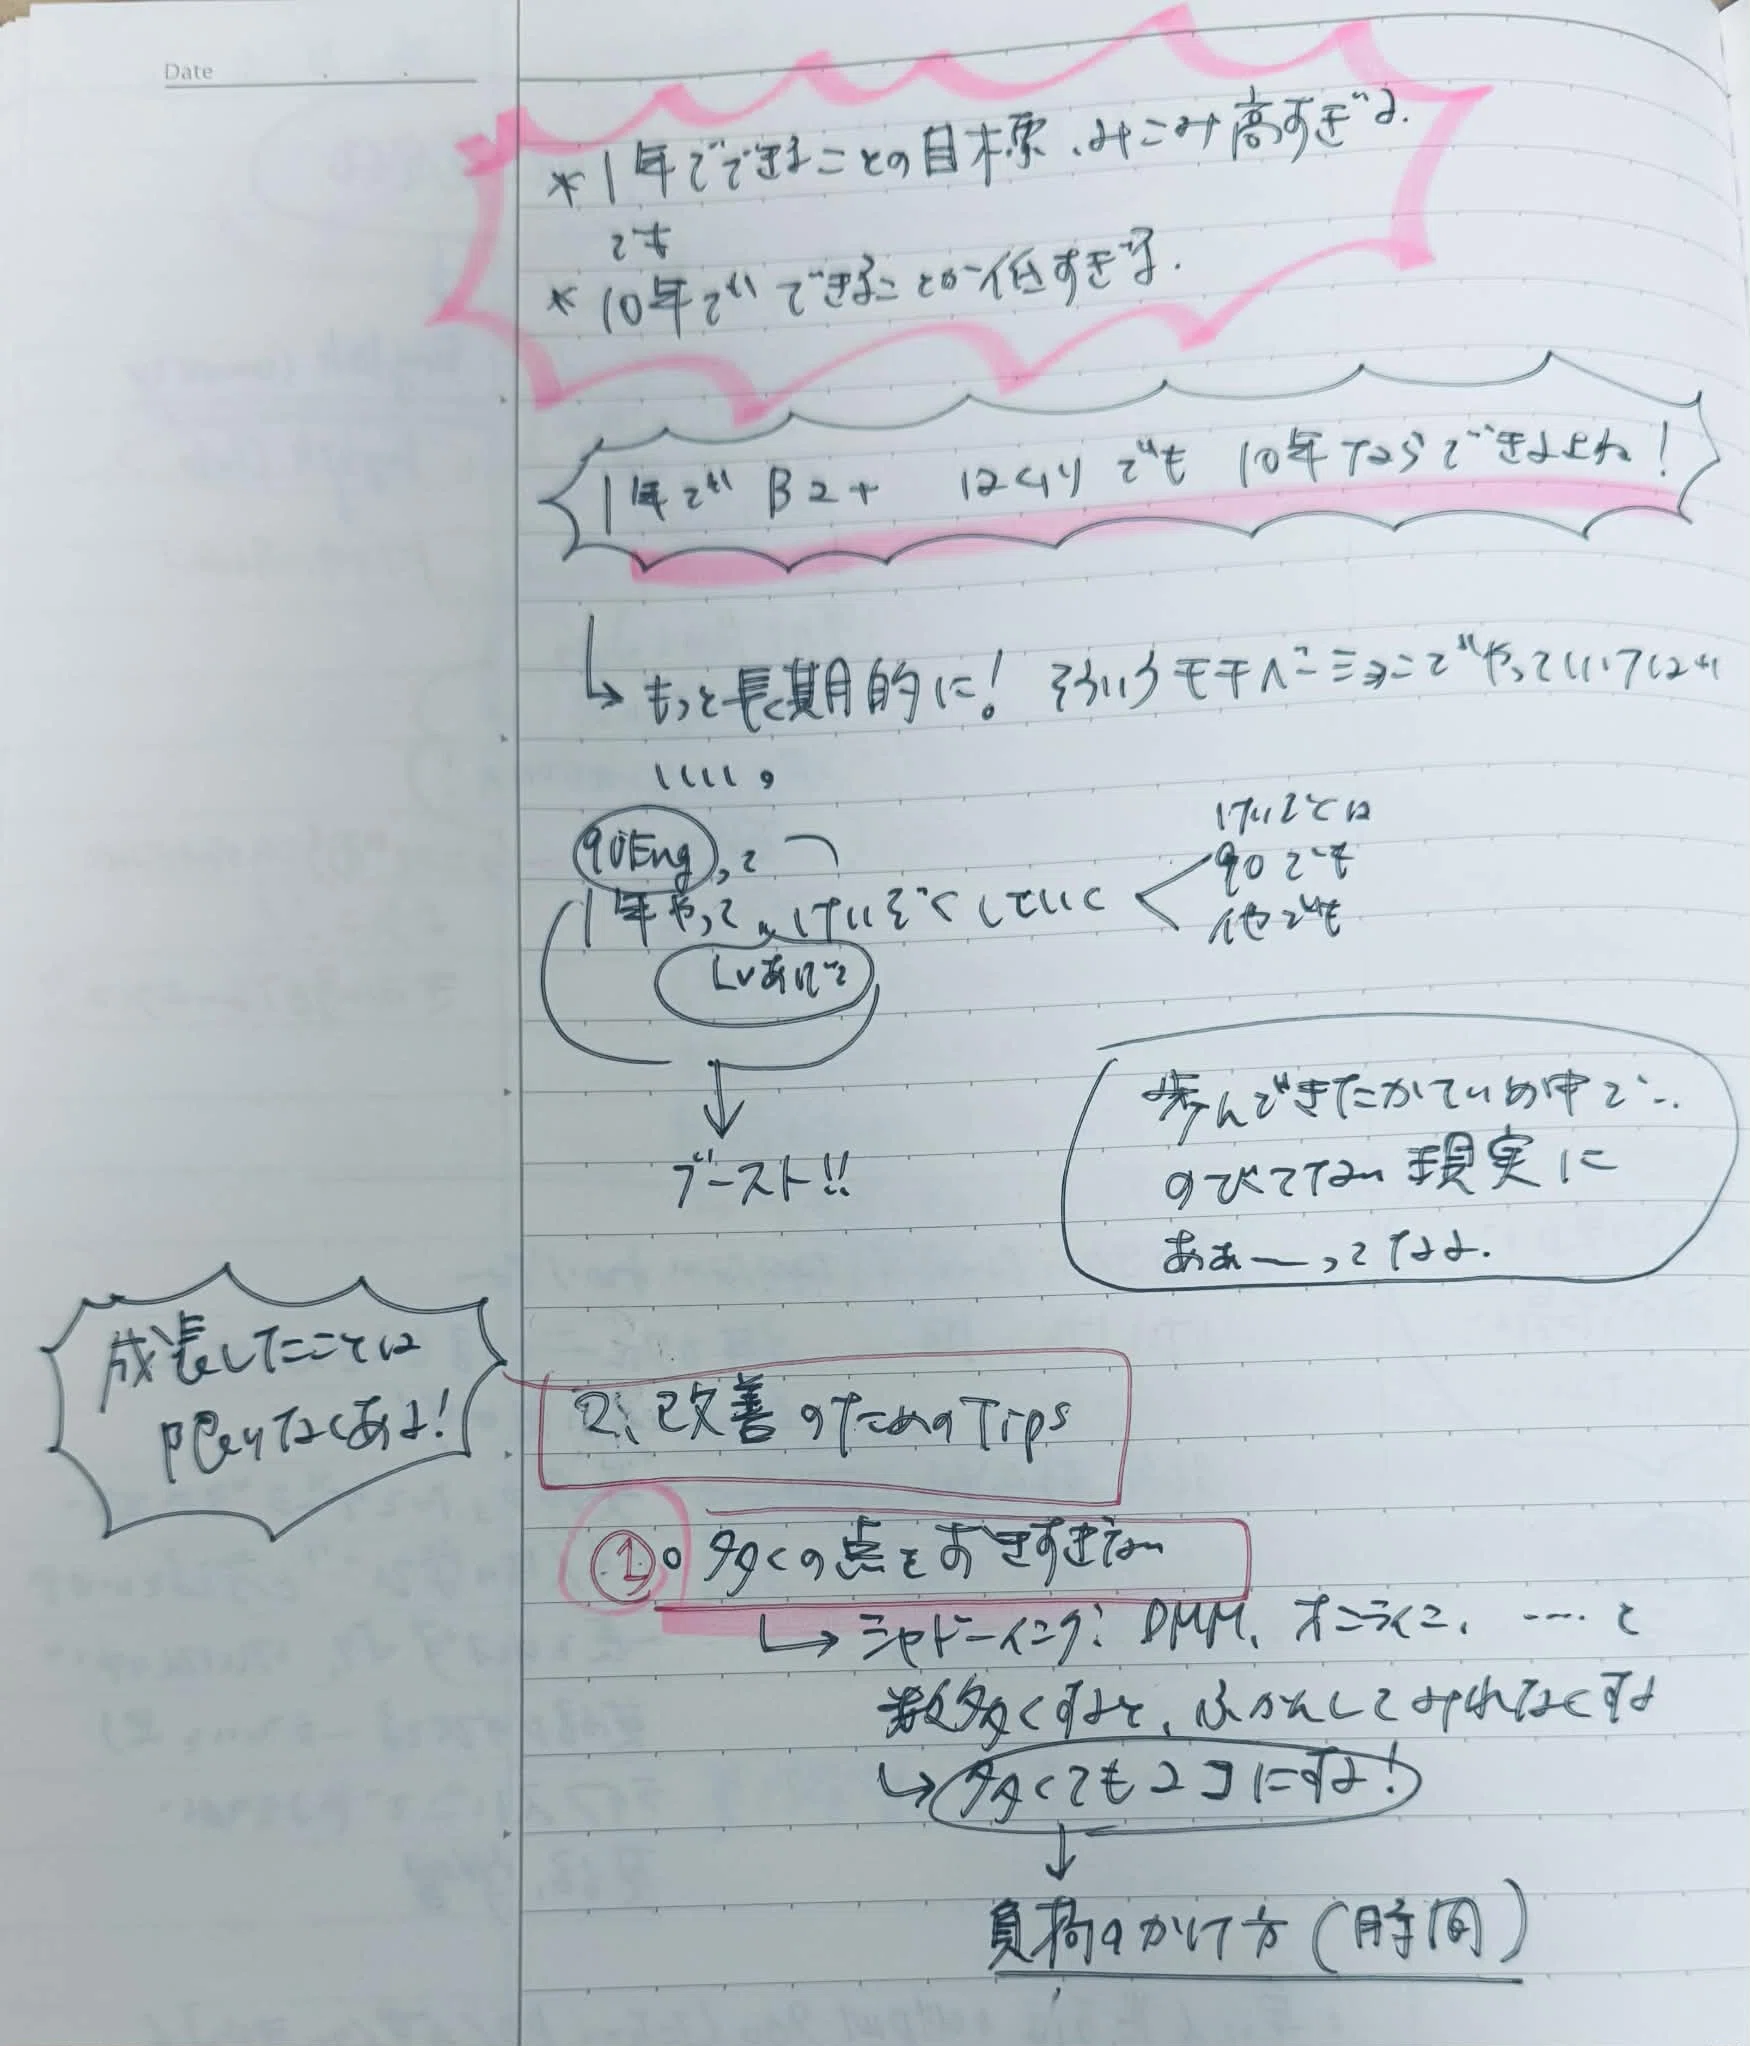 Date
* 1年でできることの目標、みこみ高すぎる.
でも
* 10年でできることが低すぎる.
1年でB2+ はムリでも 10年ならできるよね!
↳ もっと長期的に! そういうモチベーションでやっていいては
いい。
90Eng,で
1年やって、けいぞくしていく
Lvあげて
けいぞくは
90でも
他でも
ブースト!!
歩んできたかていの中で..
のびてない現実に
あぁーってなる.
成長したことは
限りなくある!
2、改善のためのTips
①。多くの点をおきすぎない
↳ シャドーイング: DMM、オンライン、……と
数多くすると、ふかんしてみれなくする
↳ 多くても2コにする!
↓
負荷のかけ方 (時間)